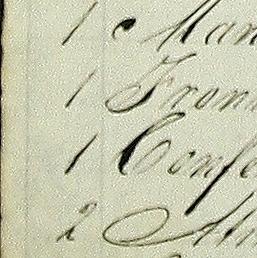 1 Man
1 From
1 Confe
2 Alm